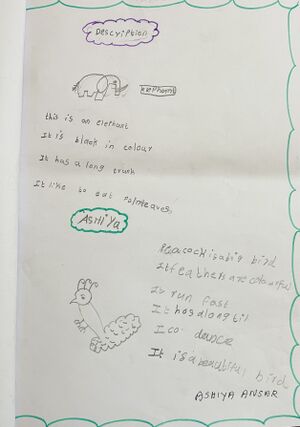 Description
Elephant
this is an elephant
It is black in colour
It has a long trunk
It like to eat Palmleaves
ASHIYA
Peacock is a big bird
It feathers are colourful
It run fast
It has a long til
I co dance
It is a beautiful bird
ASHIYA ANSAR